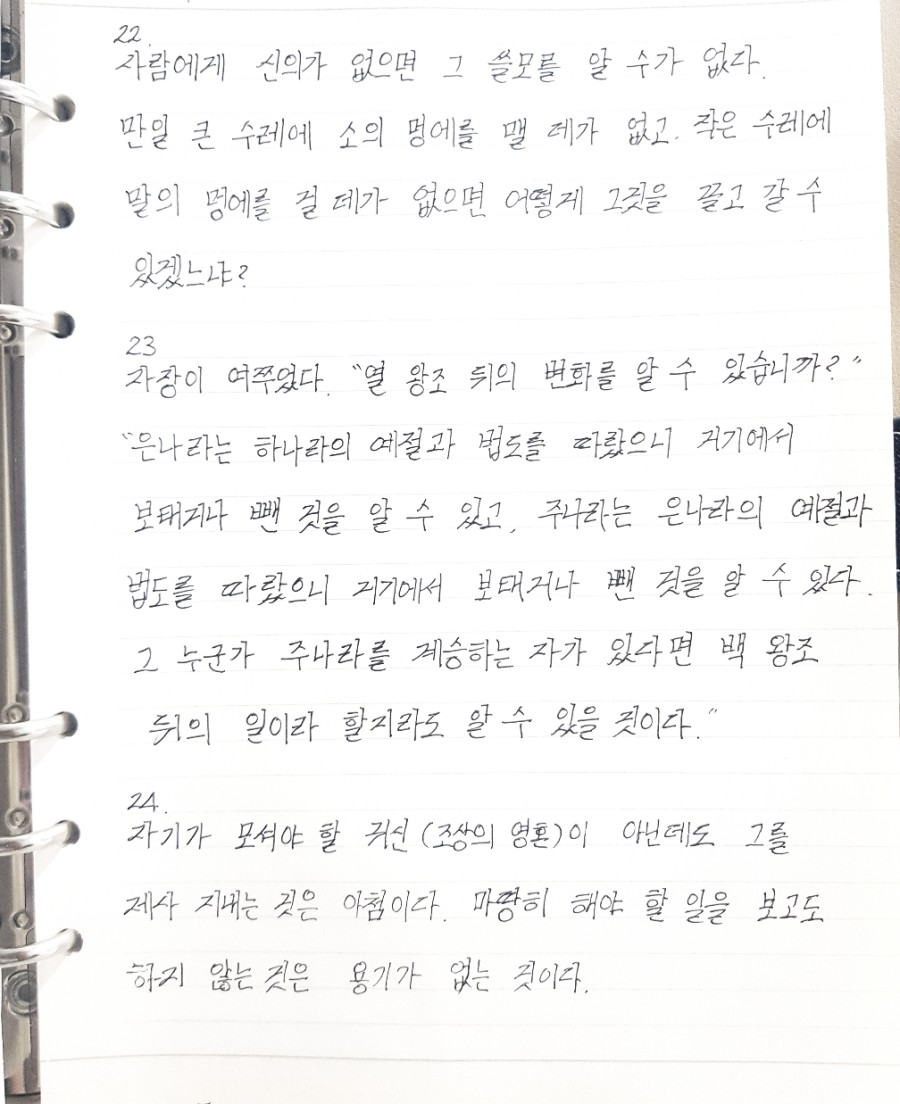 22.
사람에게 신의가 없으면 그 쓸모를 알 수가 없다.
만일 큰 수레에 소의 멍에를 맬 데가 없고, 작은 수레에
말의 멍에를 걸 데가 없으면 어떻게 그것을 끌고 갈 수
있겠느냐?
23
자장이 여쭈었다. "열 왕조 뒤의 변화를 알 수 있습니까?"
"은나라는 하나라의 예절과 법도를 따랐으니 거기에서
보태거나 뺀 것을 알 수 있고, 주나라는 은나라의 예절과
법도를 따랐으니 거기에서 보태거나 뺀 것을 알 수 있다.
그 누군가 주나라를 계승하는 자가 있다면 백 왕조
뒤의 일이라 할지라도 알 수 있을 것이다."
24.
자기가 모셔야 할 귀신(조상의 영혼)이 아닌데도 그를
제사 지내는 것은 아첨이다. 마땅히 해야 할 일을 보고도
하지 않는 것은 용기가 없는 것이다.